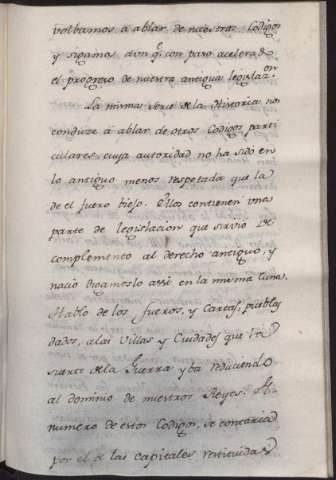 volbamos á ablar de nuestros Codigos
y sigamos aun q.e con paso acelerado
el progreso de nuestra antigua legislaz.on
La misma serie de la Historia nos
conduce á ablar de otros Codigos parti
culares cuya autoridad no ha sido en
lo antiguo menos respetada que la
de el fuero biejo. Ellos contienen una
parte de legislacion que sirvio de
complemento al derecho antiguo, y
nacio digamoslo assi en la misma Cuna.
Hablo de los fueros, y Cartas, pueblas
dados, alas Villas y Ciudades que la
suerte de la Guerra yba reduciendo
al dominio de nuestros Reyes. El
numero de estos Codigos, se contaria
por el de las capitales restituidas